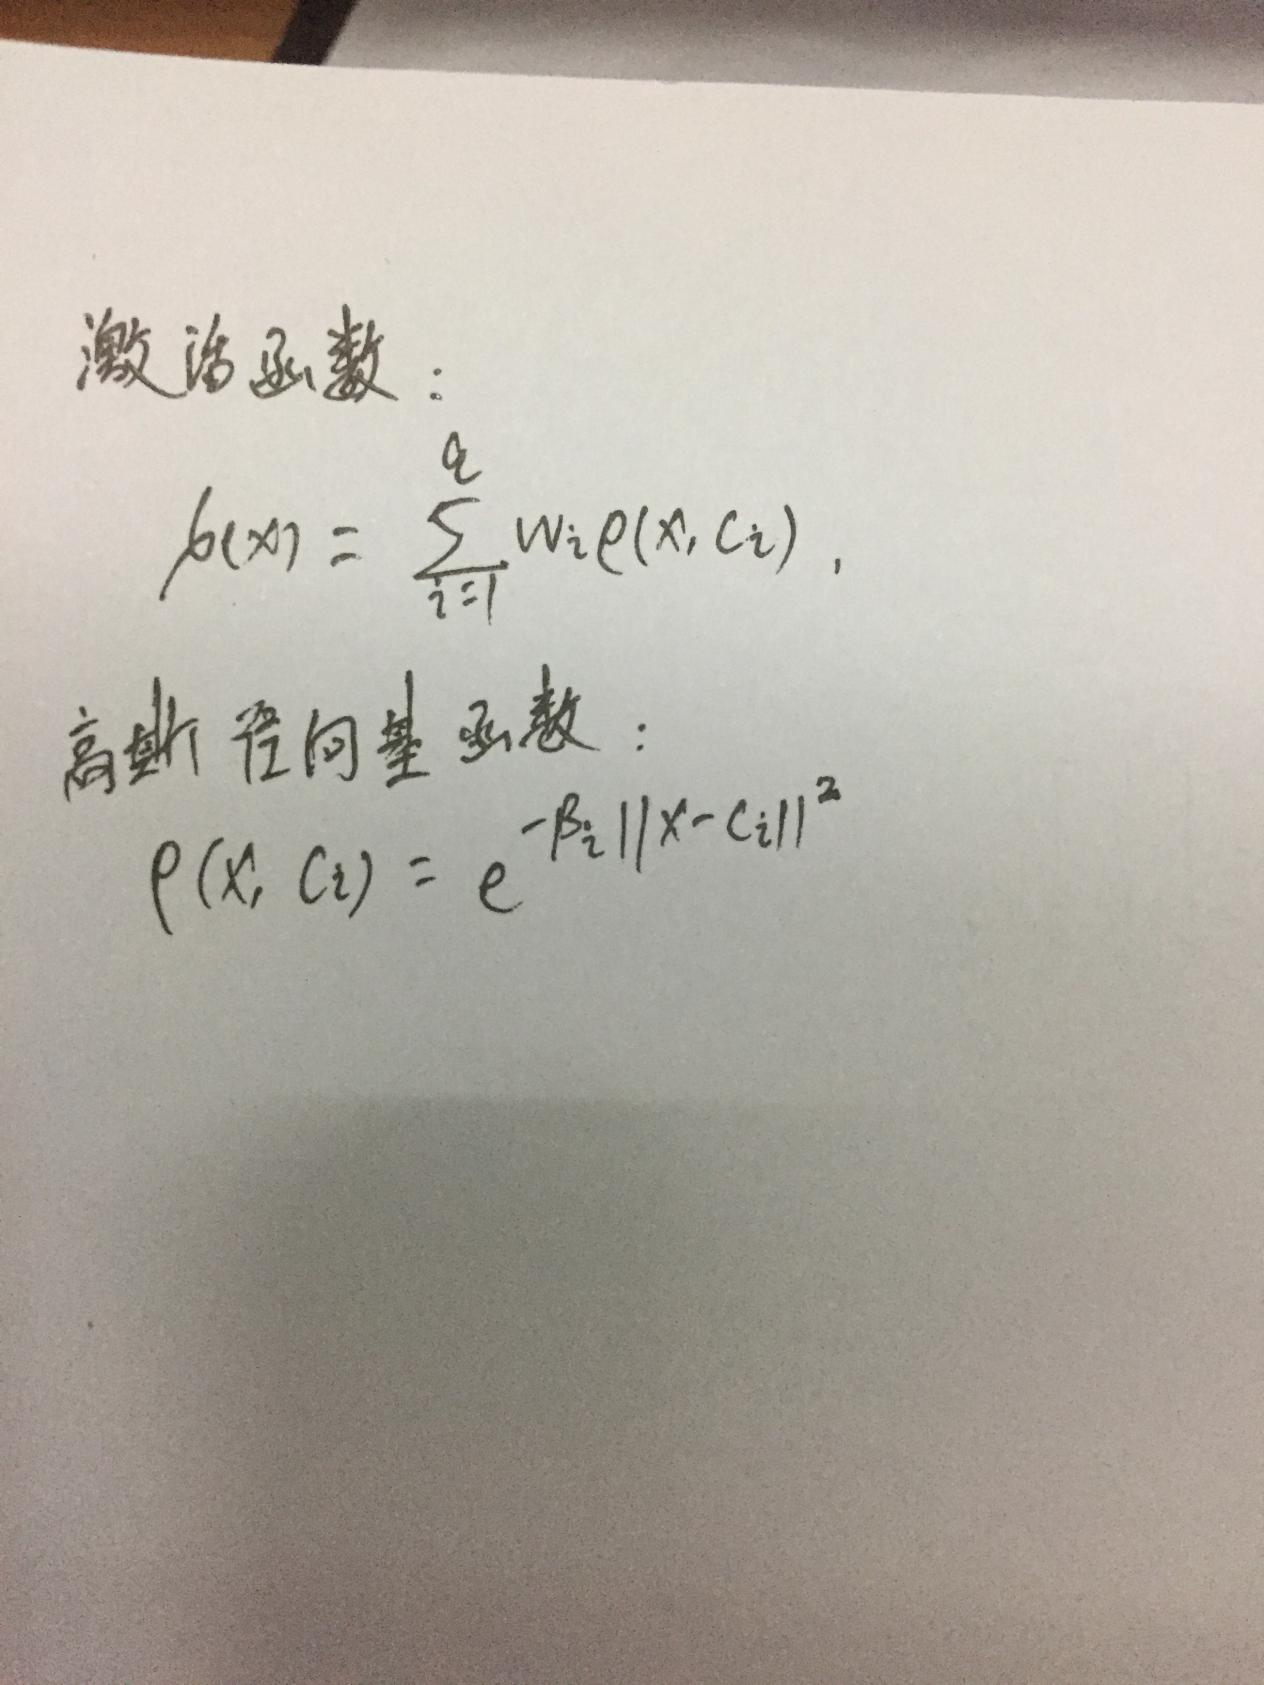 激活函数：
φ(x) = ∑_{i=1}^{q} w_i ρ(x, c_i) ,
高斯径向基函数：
ρ(x, c_i) = e^{-β_i||x-c_i||^2}